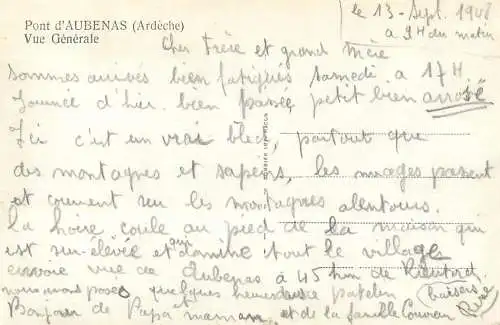 Pont d'AUBENAS (Ardèche)
Vue Générale
le 13 - Sept. 1948
a 9H du matin
Cher Frère et grand Mère
sommes arrivés bien fatigués samedi a 17H
Journée d'hier bien passée, petit bien arrosé
Ici c'est un vrai bled, partout que
des montagnes et sapins, les nuages passent
et courent sur les montagnes alentours.
la Loire coule au pied de la maison qui
est sur-élevée et qui domine tout le village
envoie vue de Aubenas à 45 km de
nous avons passé quelques heures dans ce patelin
Baisers
Bonjour de Papa maman et de la famille